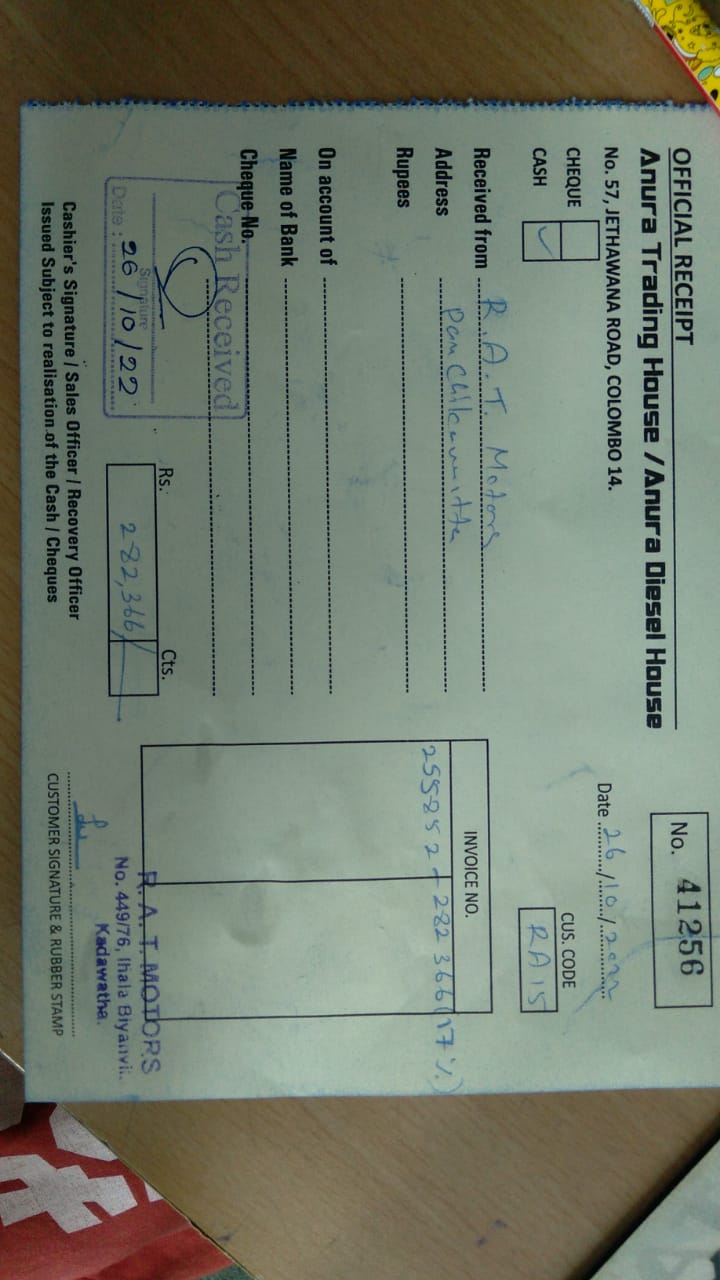 OFFICIAL RECEIPT
No. 41256
Anura Trading House / Anura Diesel House
No. 57, JETHAWANA ROAD, COLOMBO 14.
Date 26/10/2022
CHEQUE
CASH ✓
CUS. CODE
RA 15
Received from R.A.T. Motors
Address
Rupees
On account of
Name of Bank
Cheque No.
INVOICE NO.
255852 - 282 366 (17%)
Cash Received
Signature
Date : 26/10/22
Rs. Cts.
282,366/
R. A. T. MOTORS
No. 449/76, Ihala Biyanvil.
Kadawatha.
Cashier's Signature / Sales Officer / Recovery Officer
Issued Subject to realisation of the Cash / Cheques
CUSTOMER SIGNATURE & RUBBER STAMP